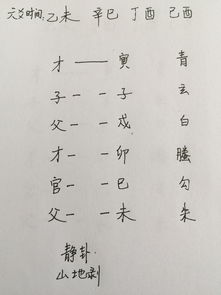 灾时间:乙未 辛巳 丁酉 己酉
才 — 寅 青
子 - - 子 玄
父 - - 戌 白
才 - - 卯 螣
官 - - 巳 勾
父 - - 未 朱
静卦
山地剥